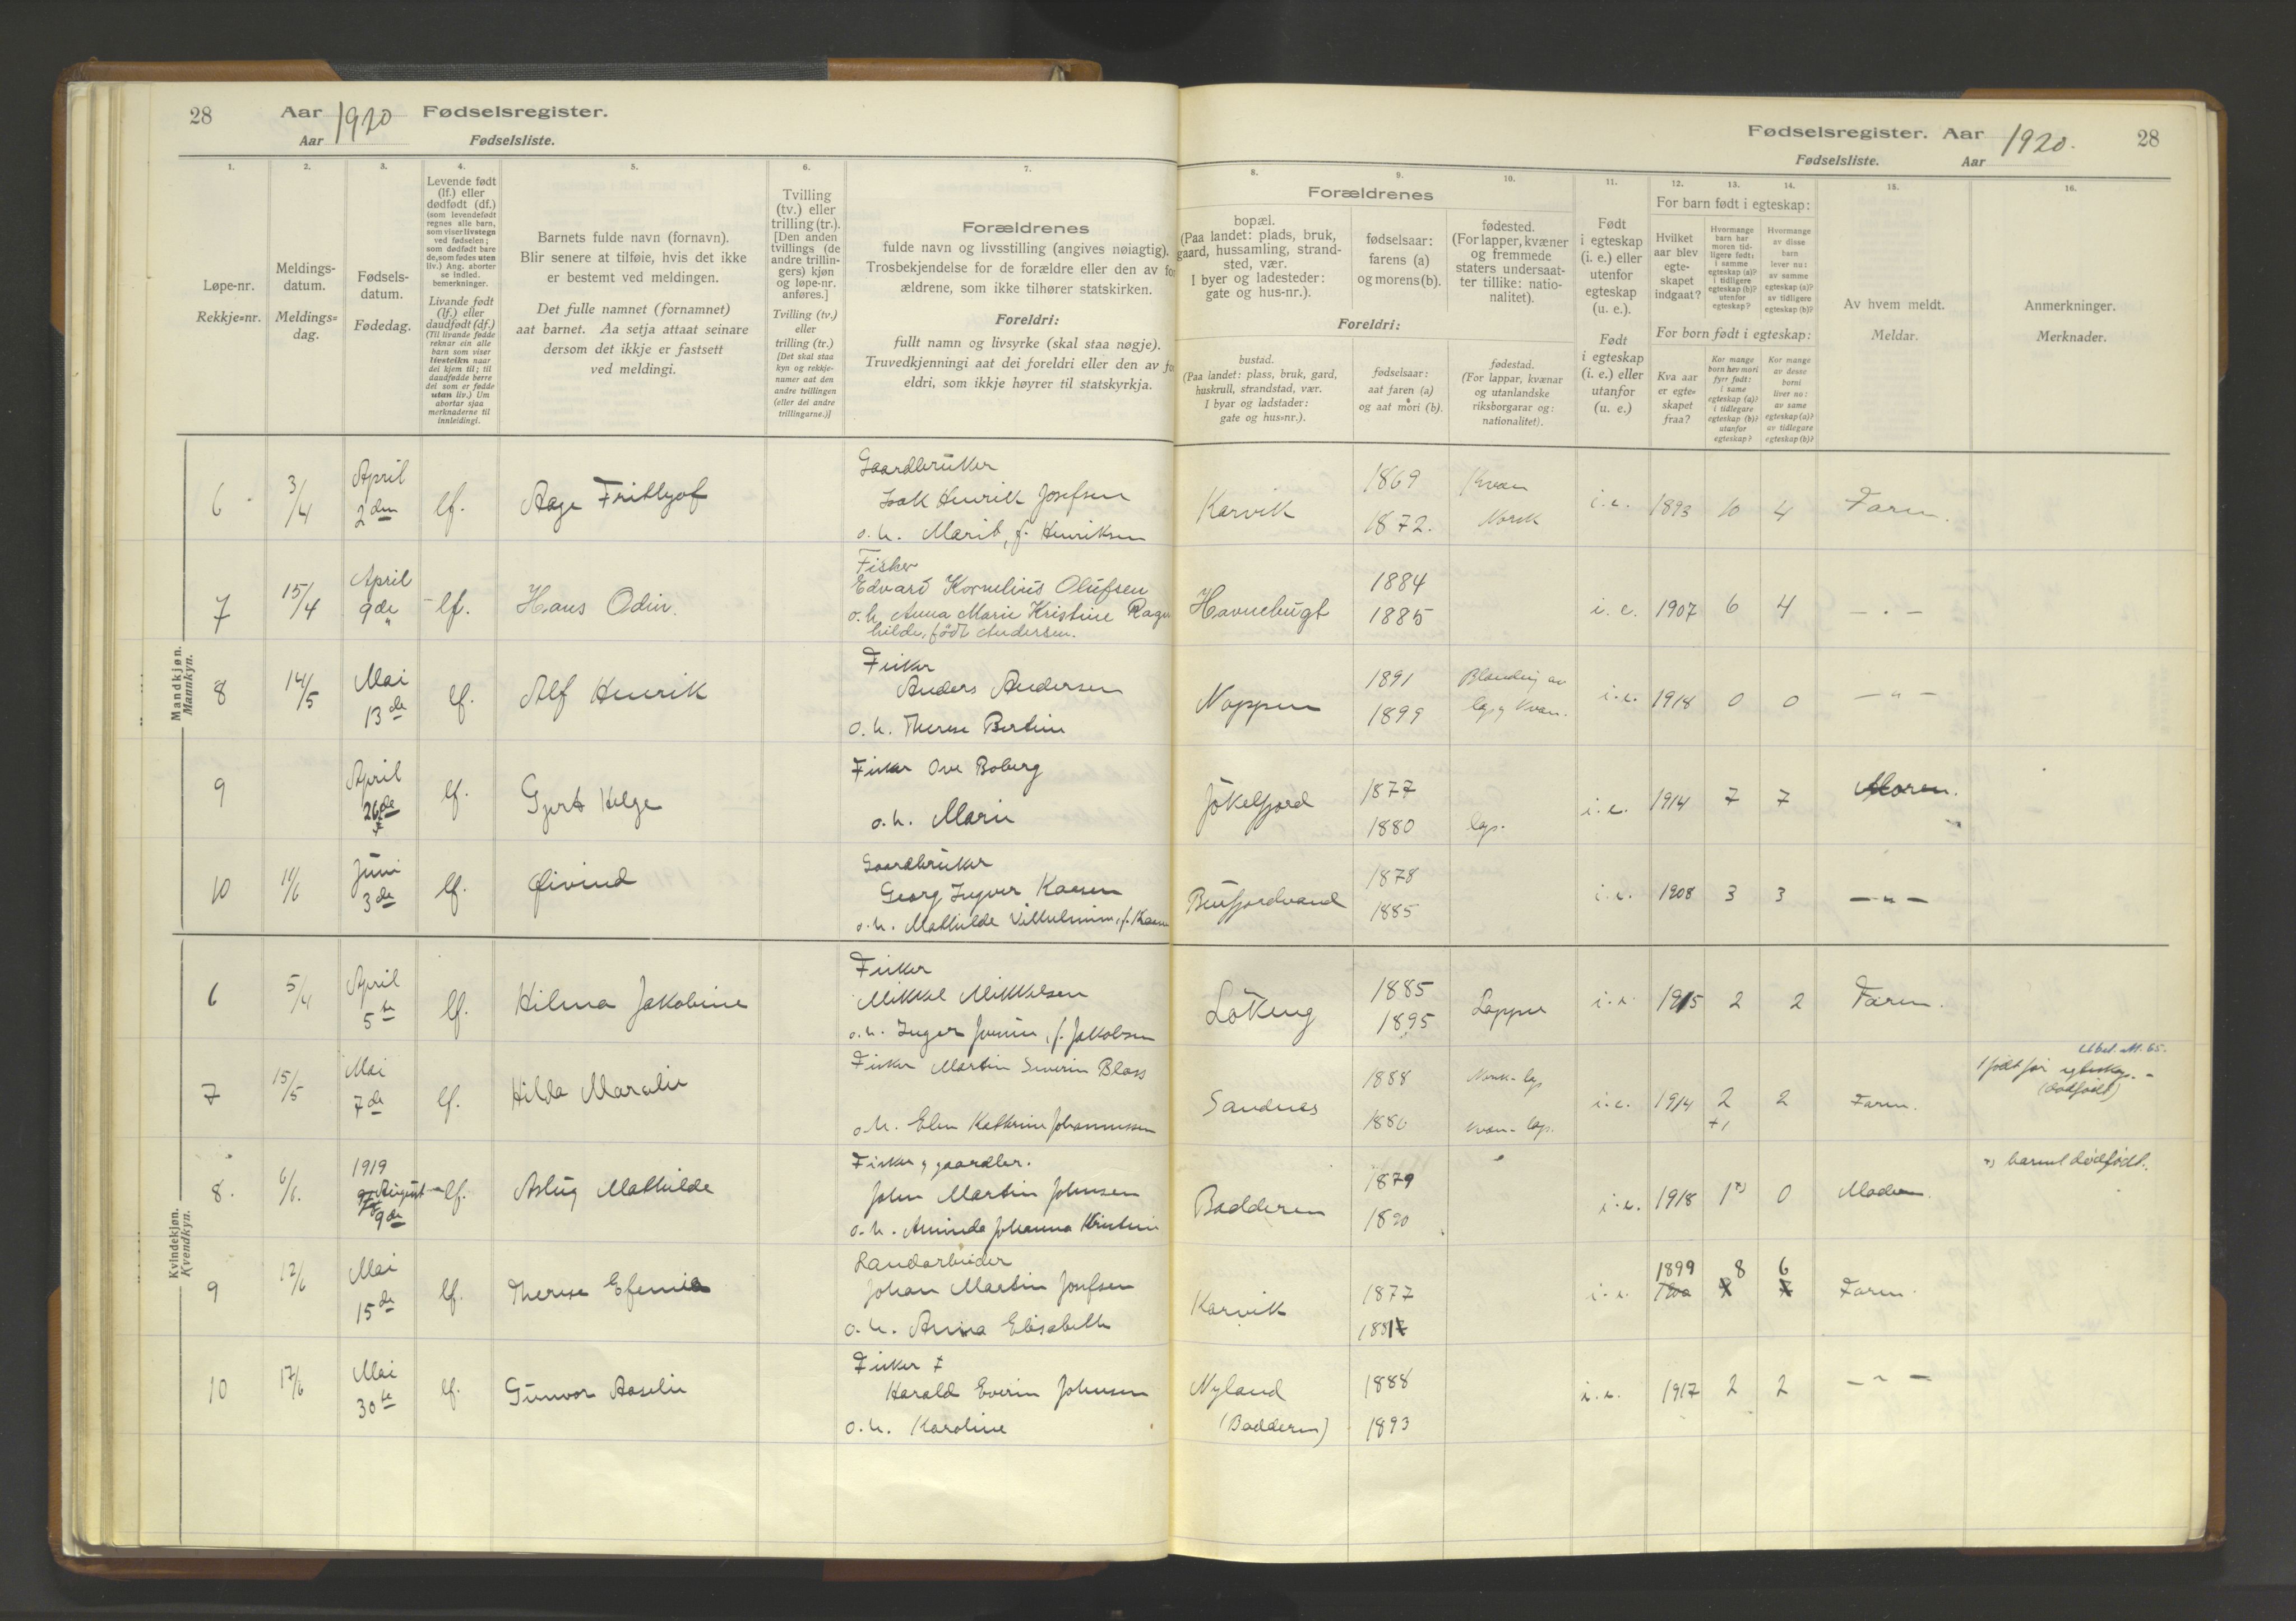 28 Aar 1920 Fødselsregister.
Aar Fødselsliste.
Fødselsregister. Aar 1920. 28
Fødselsliste. Aar
1. 2. 3. 4. 5. 6. 7.
Løpe-nr.
Rekkje=nr.
Meldings-
datum.
Meldings=
dag.
Fødsels-
datum.
Fødedag.
Levende født
(lf.) eller
dødfødt (df.)
(som levendefødt
regnes alle barn,
som viser livstegn
ved fødselen;
som dødfødt bare
de, som fødes uten
liv.) Ang. aborter
se indled.
bemerkninger.
Livande født
(lf.) eller
daudfødt (df.)
(Til livande fødde
reknar ein alle
barn som viser
livsteikn naar
dei kjem til; til
daudfødde berre
dei som er fødde
utan liv.) Um
abortar sjaa
merknaderne til
innleidingi.
Barnets fulde navn (fornavn).
Blir senere at tilføie, hvis det ikke
er bestemt ved meldingen.
Det fulle namnet (fornamnet)
aat barnet. Aa setja attaat seinare
dersom det ikkje er fastsett
ved meldingi.
Tvilling
(tv.) eller
trilling (tr.).
[Den anden
tvillings (de
andre trillin-
gers) kjøn
og løpe-nr.
anføres.]
Tvilling (tv.)
eller
trilling (tr.)
[Det skal staa
kyn og rekkje-
numer aat den
andre tvillingen
(eller dei andre
trillingarne.)]
Forældrenes
fulde navn og livsstilling (angives nøiagtig).
Trosbekjendelse for de forældre eller den av for
ældrene, som ikke tilhører statskirken.
Foreldri:
fullt namn og livsyrke (skal staa nøgje).
Truvedkjenningi aat dei foreldri eller den av fo
eldri, som ikkje høyrer til statskyrkja.
8. 9. 10. 11. 12. 13. 14. 15. 16.
Forældrenes
bopæl.
(Paa landet: plads, bruk,
gaard, hussamling, strand-
sted, vær.
I byer og ladesteder:
gate og hus-nr.).
fødselsaar:
farens (a)
og morens (b).
fødested.
(For lapper, kvæner
og fremmede
staters undersaat-
ter tillike: natio-
nalitet).
Foreldri:
bustad.
(Paa landet: plass, bruk, gard,
huskrull, strandstad, vær.
I byar og ladstader:
gate og hus=nr.).
fødselsaar:
aat faren (a)
og aat mori (b).
fødestad.
(For lappar, kvænar
og utanlandske
riksborgarar og:
nationalitet).
Født
i egteskap
(i. e.) eller
utenfor
egteskap
(u. e.).
Født
i egteskap
(i. e.) eller
utanfor
(u. e.)
For barn født i egteskap:
Hvilket
aar blev
egte-
skapet
indgaat?
Hvormange
barn har
moren tid-
ligere født:
i samme
egteskap (a)?
i tidligere
egteskap (b)?
utenfor
egteskap?
Hvormange
av disse
barn
lever nu:
av samme
egteskap (a)?
av tidligere
egteskap (b)?
For born født i egteskap:
Kva aar
er egte=
skapet
fraa?
Kor mange
born hev mori
fyrr født:
i same
egteskap (a)?
i tidlegare
egteskap (b)?
utanfor
egteskap?
Kor mange
av desse
borni
liver no:
av same
egteskap (a)?
av tidlegare
egteskap (b)?
Av hvem meldt.
Meldar.
Anmerkninger.
Merknader.
Mandkjøn.
Mannkyn.
6 3/4 April 2den lf. Aage Frithjof
Gaardbruker
Isak Henrik Josefsen
o. h. Marit, f. Henriksen
Karvik 1869 1872. Kvæn Norsk i.e. 1893 10 4 Faren.
7 15/4 April 9de lf. Hans Odin.
Fisker
Edvard Kornelius Olufsen
o. h. Anna Marie Kristine Ragn
hilde, født Andersen.
Havnebugt 1884 1885 i. e. 1907 6 4 - . -
8 14/5 Mai 13de lf. Alf Henrik
Fisker
Anders Andersen
o. h. Therese Bertine
Noppen 1891 1899 Blanding av lap og Kvæn. i.e. 1918 0 0 - " -
9 April 26de lf. Gjert Helge
Fisker Ove Boberg
o. h. Marie
Jökelfjord 1877 1880 lap. i. e. 1914 7 7 Moren.
10 11/6 Juni 3de lf. Øivind
Gaardbruker
Georg Ingver Kaasen
o. h. Mathilde Vilhelmine, f. Kaasen
Burfjordvand 1878 1885 i. e. 1908 3 3 - " -
Kvindekjøn.
Kvendkyn.
6 5/4 April 5te lf. Hilma Jakobine
Fisker
Mikkel Mikkelsen
o. h. Inger Jonine, f. Jakobsen
Lökeng 1885 1895 Lapper i. e. 1915 2 2 Faren.
7 15/5 Mai 7de lf. Hilda Maralie
Fisker Martin Severin Blass
o. h. Elen Kathrine Johannessen
Sandnes 1888 1886 Norsk-lap Kvæn-lap. i.e. 1914 2 +1 2 Faren.
1 født før egteskap. -
(dødfødt)
8. 6/6. 1919 August 9de lf. Aslug Mathilde
Fisker og gaardbr.
John Martin Johnsen
o. h. Aminda Johanna Kristine
Badderen 1879 1890 i. e. 1918 1 x) 0 Moderen.
x) barnet dødfødt.
9 12/6 Mai 15de lf. Therese Efemia
Landarbeider
Johan Martin Josefsen
o. h. Anna Elisabeth
Karvik 1877 1881 i. e. 1899 8 6 Faren.
10 17/6 Mai 30te lf. Gunvor Aaselie
Fisker
Harald Everin Johnsen
o. h. Karoline
Nyland (Badderen) 1888 1893 i. e. 1917 2 2 - " -